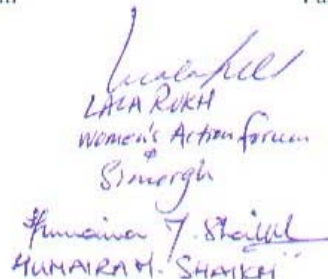 LALA RUKH
Women's Action Forum
&
Simorgh
Humaira M. Shaikh
HUMAIRA M. SHAIKH